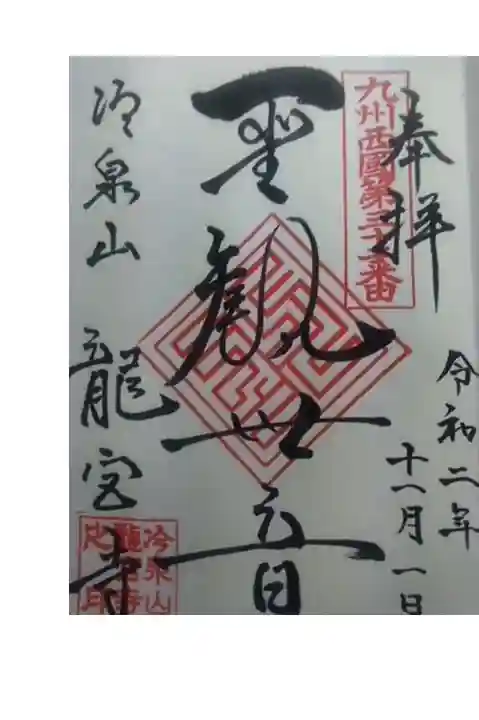 奉拝
令和二年
十一月一日
九州西國第三十二番
聖観世音
冷泉山 龍宮寺
冷泉山
龍宮寺
之印